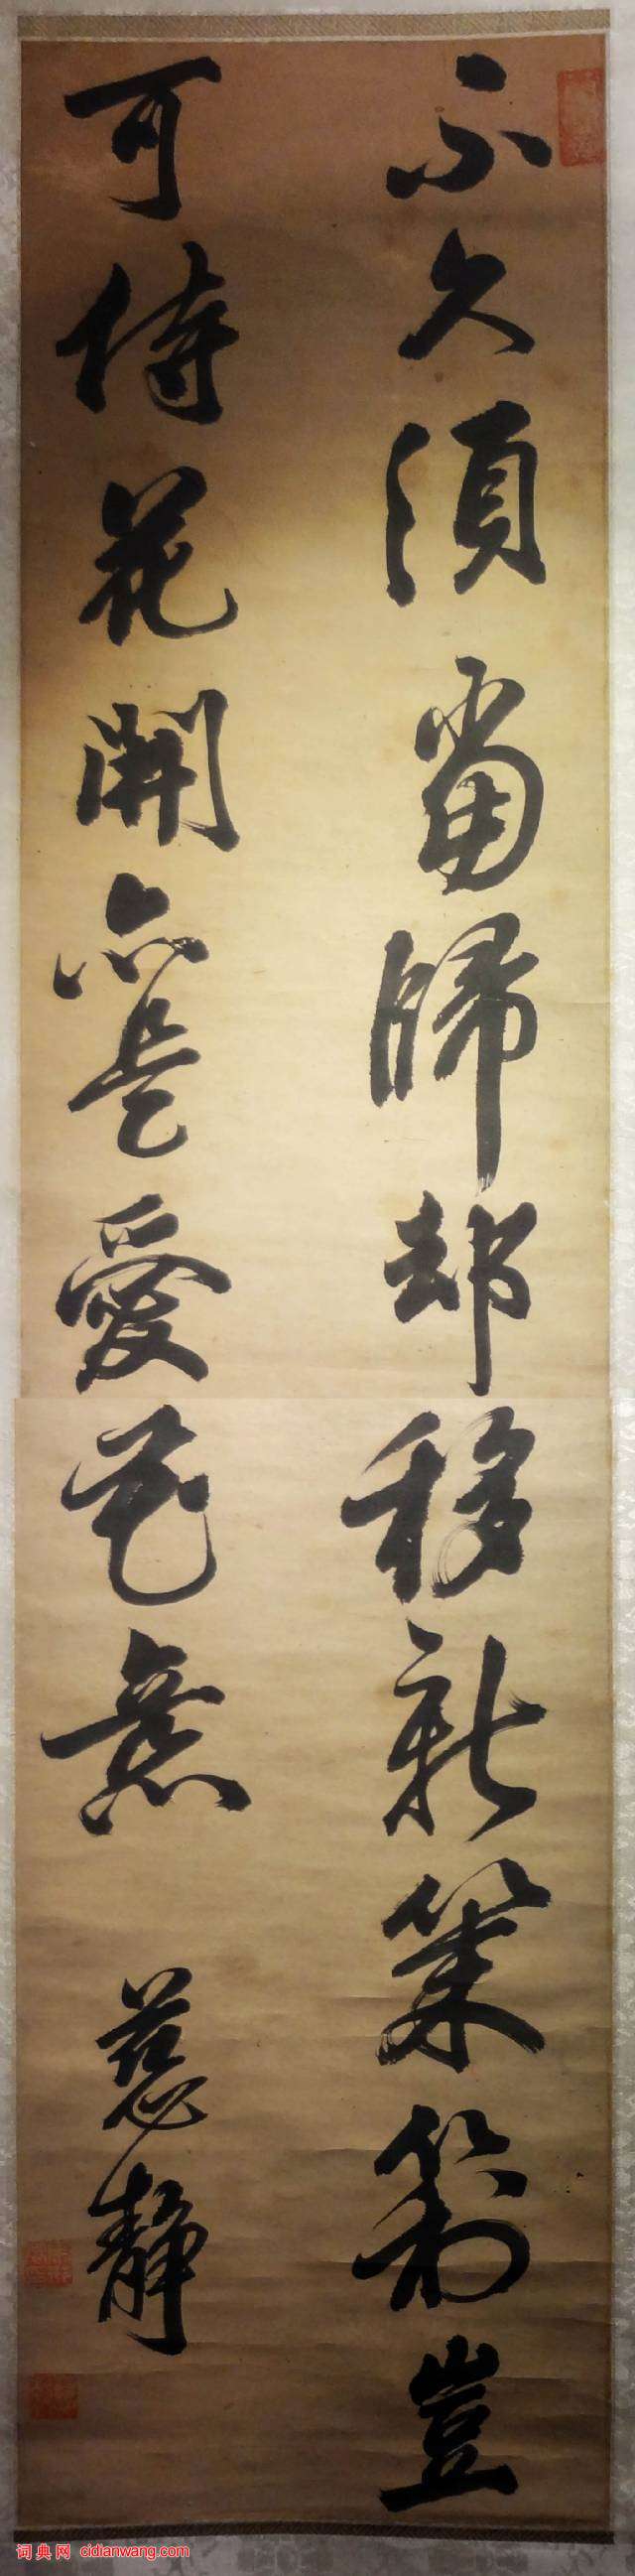 不久須當歸却移新豈
可待花開亦是愛花意 慈靜
词典网 cidianwang.com